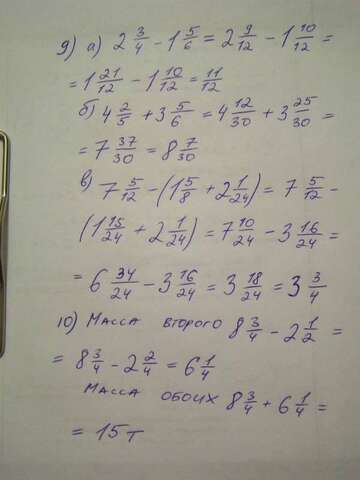 9) а) 2 3/4 - 1 5/6 = 2 9/12 - 1 10/12 =
= 1 21/12 - 1 10/12 = 11/12
б) 4 2/5 + 3 5/6 = 4 12/30 + 3 25/30 =
= 7 37/30 = 8 7/30
в) 7 5/12 - (1 5/8 + 2 1/24) = 7 5/12 -
(1 15/24 + 2 1/24) = 7 10/24 - 3 16/24 =
= 6 34/24 - 3 16/24 = 3 18/24 = 3 3/4
10) Масса второго 8 3/4 - 2 1/2 =
= 8 3/4 - 2 2/4 = 6 1/4
Масса обоих 8 3/4 + 6 1/4 =
= 15 т